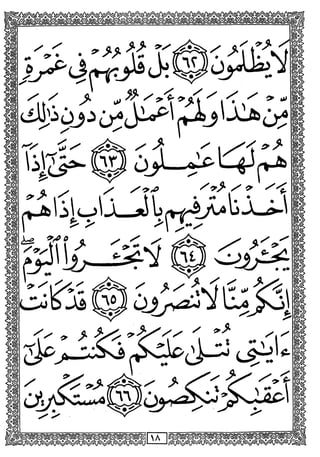 لَا يُظْلَمُونَ ٦٢ بَلْ قُلُوبُهُمْ فِي غَمْرَةٍ
مِّنْ هَٰذَا وَلَهُمْ أَعْمَالٌ مِّن دُونِ ذَٰلِكَ
هُمْ لَهَا عَامِلُونَ ٦٣ حَتَّىٰ إِذَا
أَخَذْنَا مُتْرَفِيهِم بِالْعَذَابِ إِذَا هُمْ
يَجْـَٔرُونَ ٦٤ لَا تَجْـَٔرُوا الْيَوْمَ ۖ
إِنَّكُم مِّنَّا لَا تُنصَرُونَ ٦٥ قَدْ كَانَتْ
ءَايَاتِي تُتْلَىٰ عَلَيْكُمْ فَكُنتُمْ عَلَىٰ
أَعْقَابِكُمْ تَنكِصُونَ ٦٦ مُسْتَكْبِرِينَ
١٨